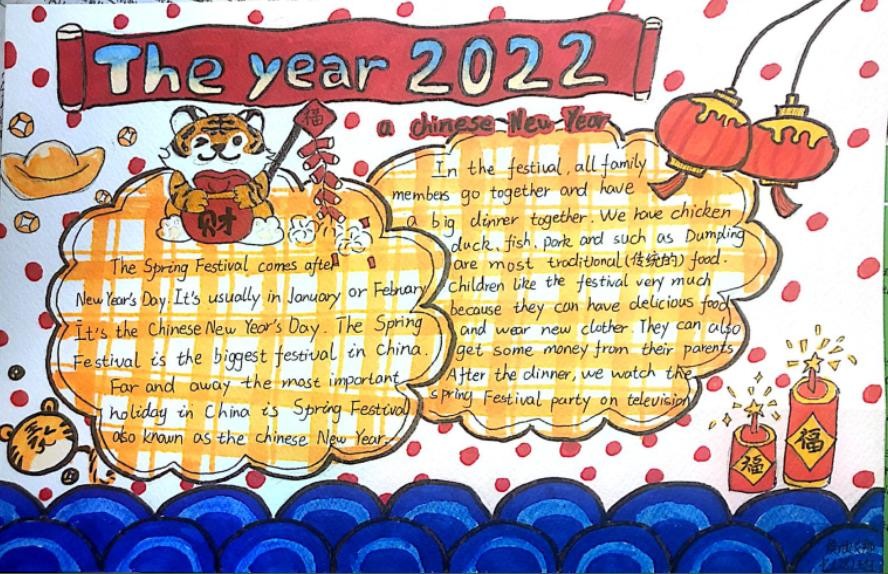 The year 2022
a chinese New Year
福
财
The Spring Festival comes after
New Year's Day. It's usually in January or Febuary
It's the Chinese New Year's Day. The Spring
Festival is the biggest festival in China.
Far and away the most important
holiday in China is Spring Festival
also known as the chinese New Year.
In the festival, all family
members go together and have
a big dinner together. We have chicken
duck, fish, pork and such as Dumpling
are most traditional (传统的) food.
Children like the festival very much
because they can have delicious food
and wear new clother. They can also
get some money from their parents
After the dinner, we watch the
spring Festival party on television
福
福